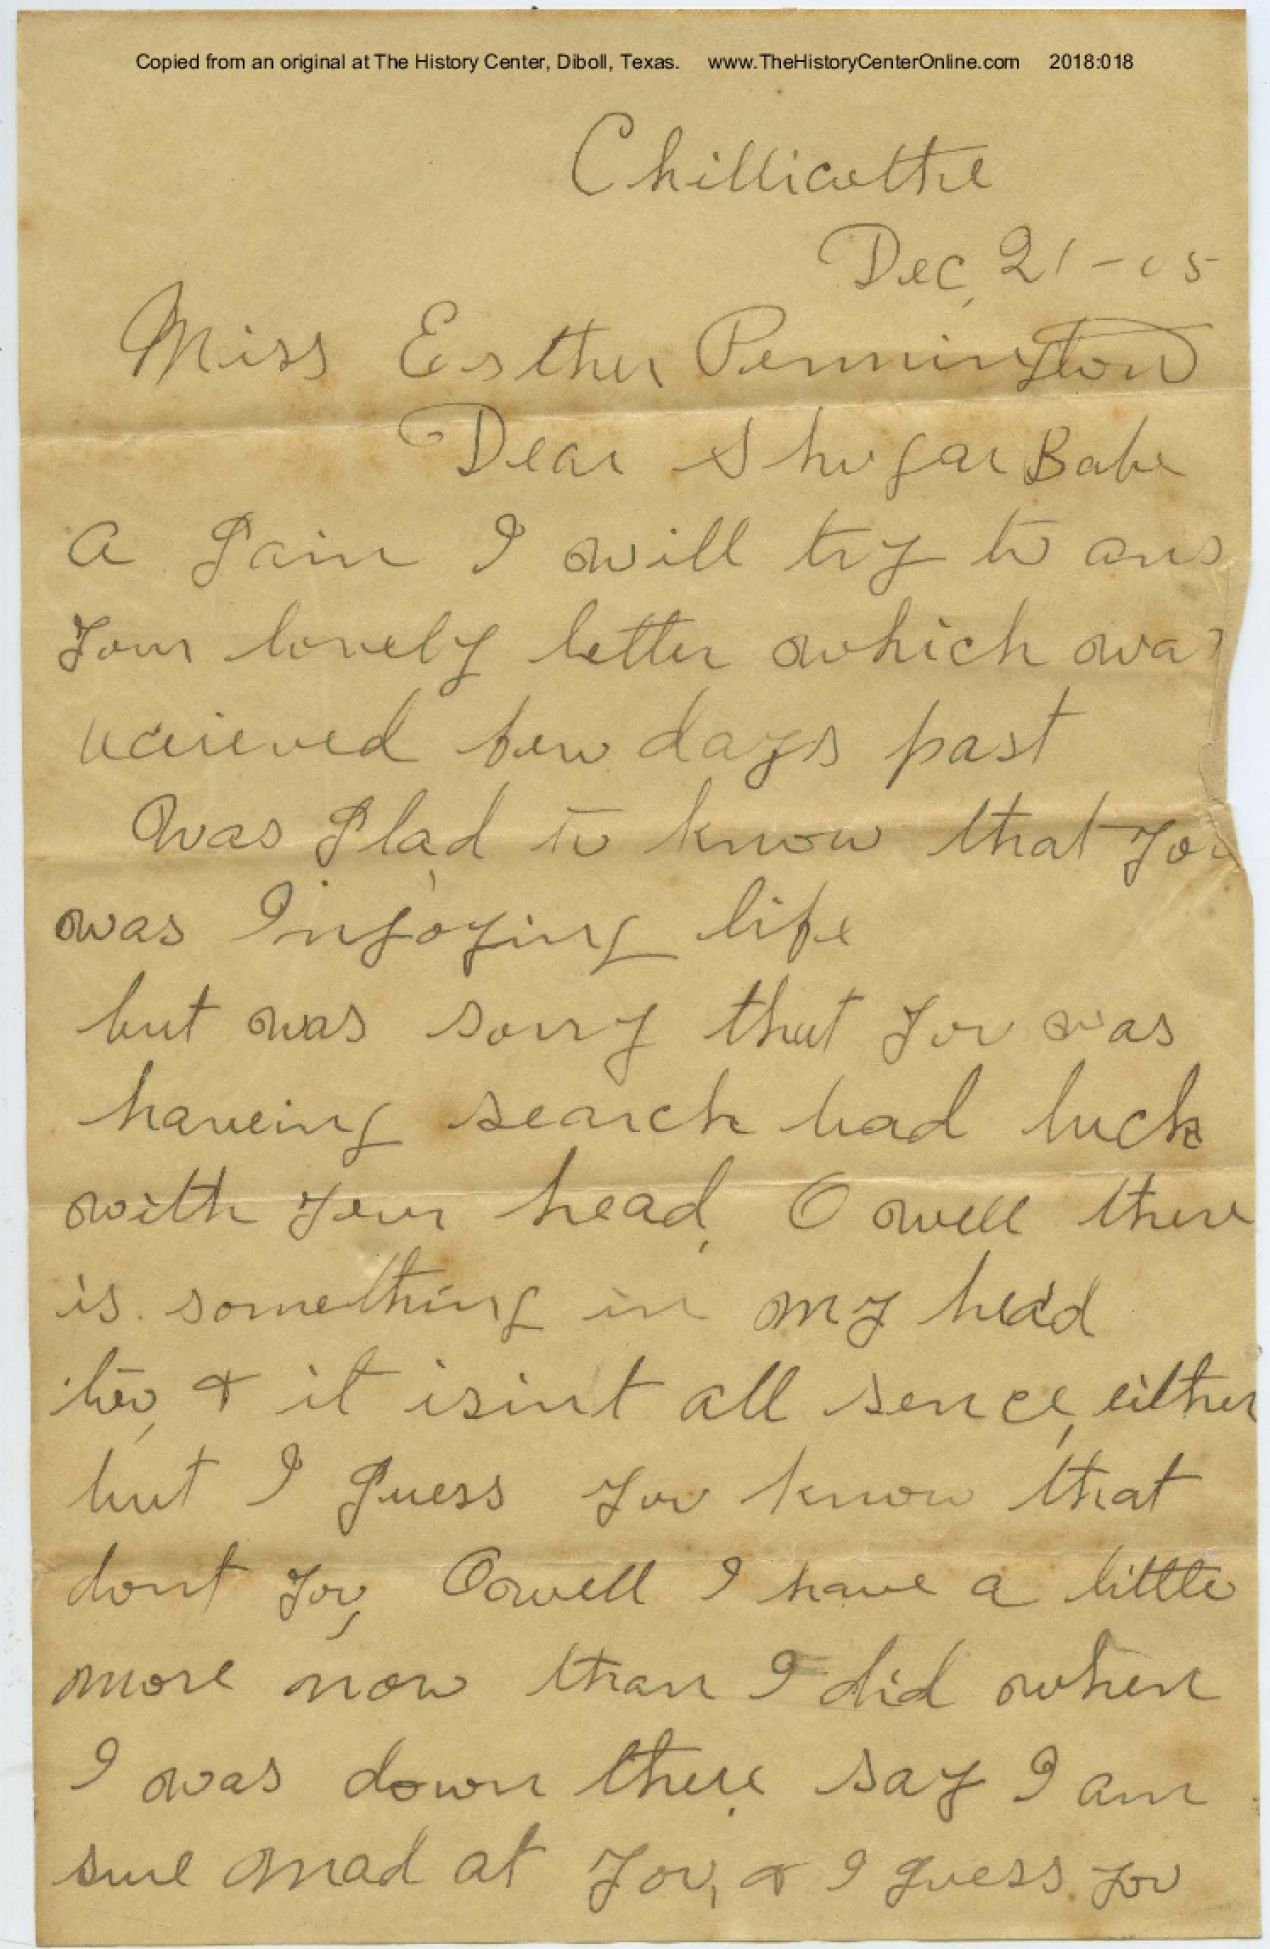 Copied from an original at The History Center, Diboll, Texas. www.TheHistoryCenterOnline.com 2018:018
Chillicothe
Dec, 21-05
Miss Esther Pennington
Dear Shugar Babe
A gain I will try to ans
your lovely letter which was
recieved few days past
Was glad to know that you
was Injoying life
but was sorry that you was
haveing search bad luck
with your head, O well there
is something in my head
too, & it isint all sence, either
but I guess you know that
dont you, Owell I have a little
more now than I did when
I was down there say I am
sure mad at you, & I guess you